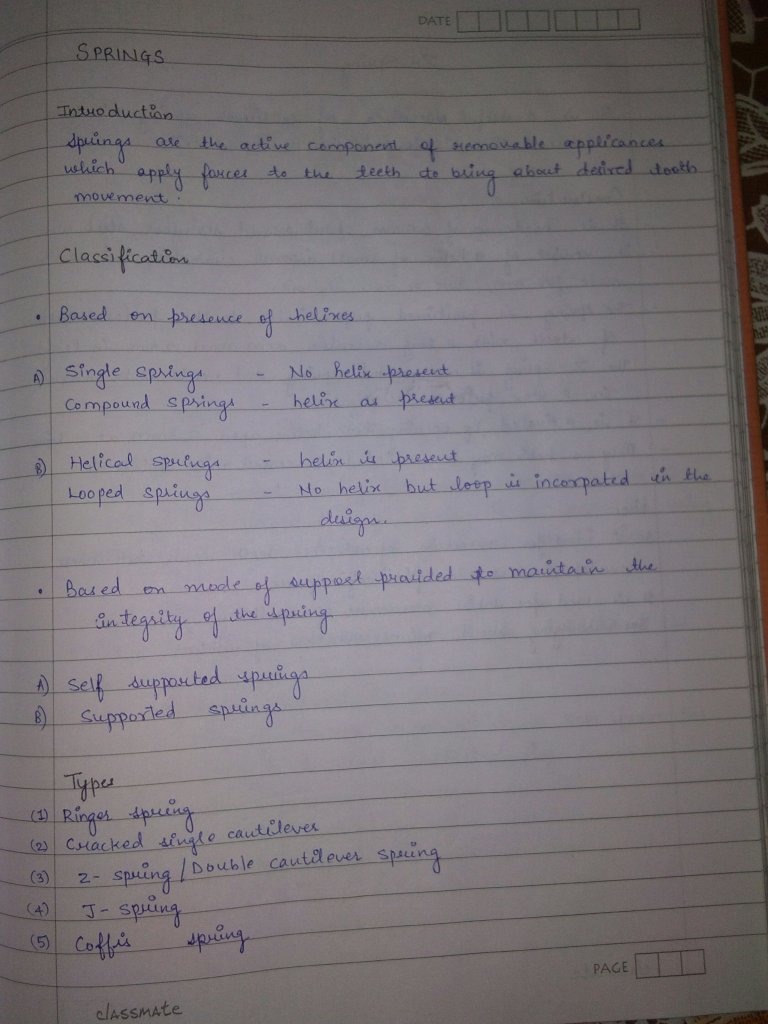 DATE
SPRINGS
Introduction
Springs are the active component of removable applicances
which apply forces to the teeth to bring about desired tooth
movement.
Classification
• Based on presence of helixes
A) Single springs - No helix present
Compound springs - helix as present
B) Helical springs - helix is present
Looped springs - No helix but loop is incorpated in the
design.
• Based on mode of support provided to maintain the
integrity of the spring
A) Self supported springs
B) Supported springs
Types
(1) Ringer spring
(2) Cracked single cantilever
(3) Z- spring / Double cantilever spring
(4) J- spring
(5) Coffis spring
PAGE
classmate